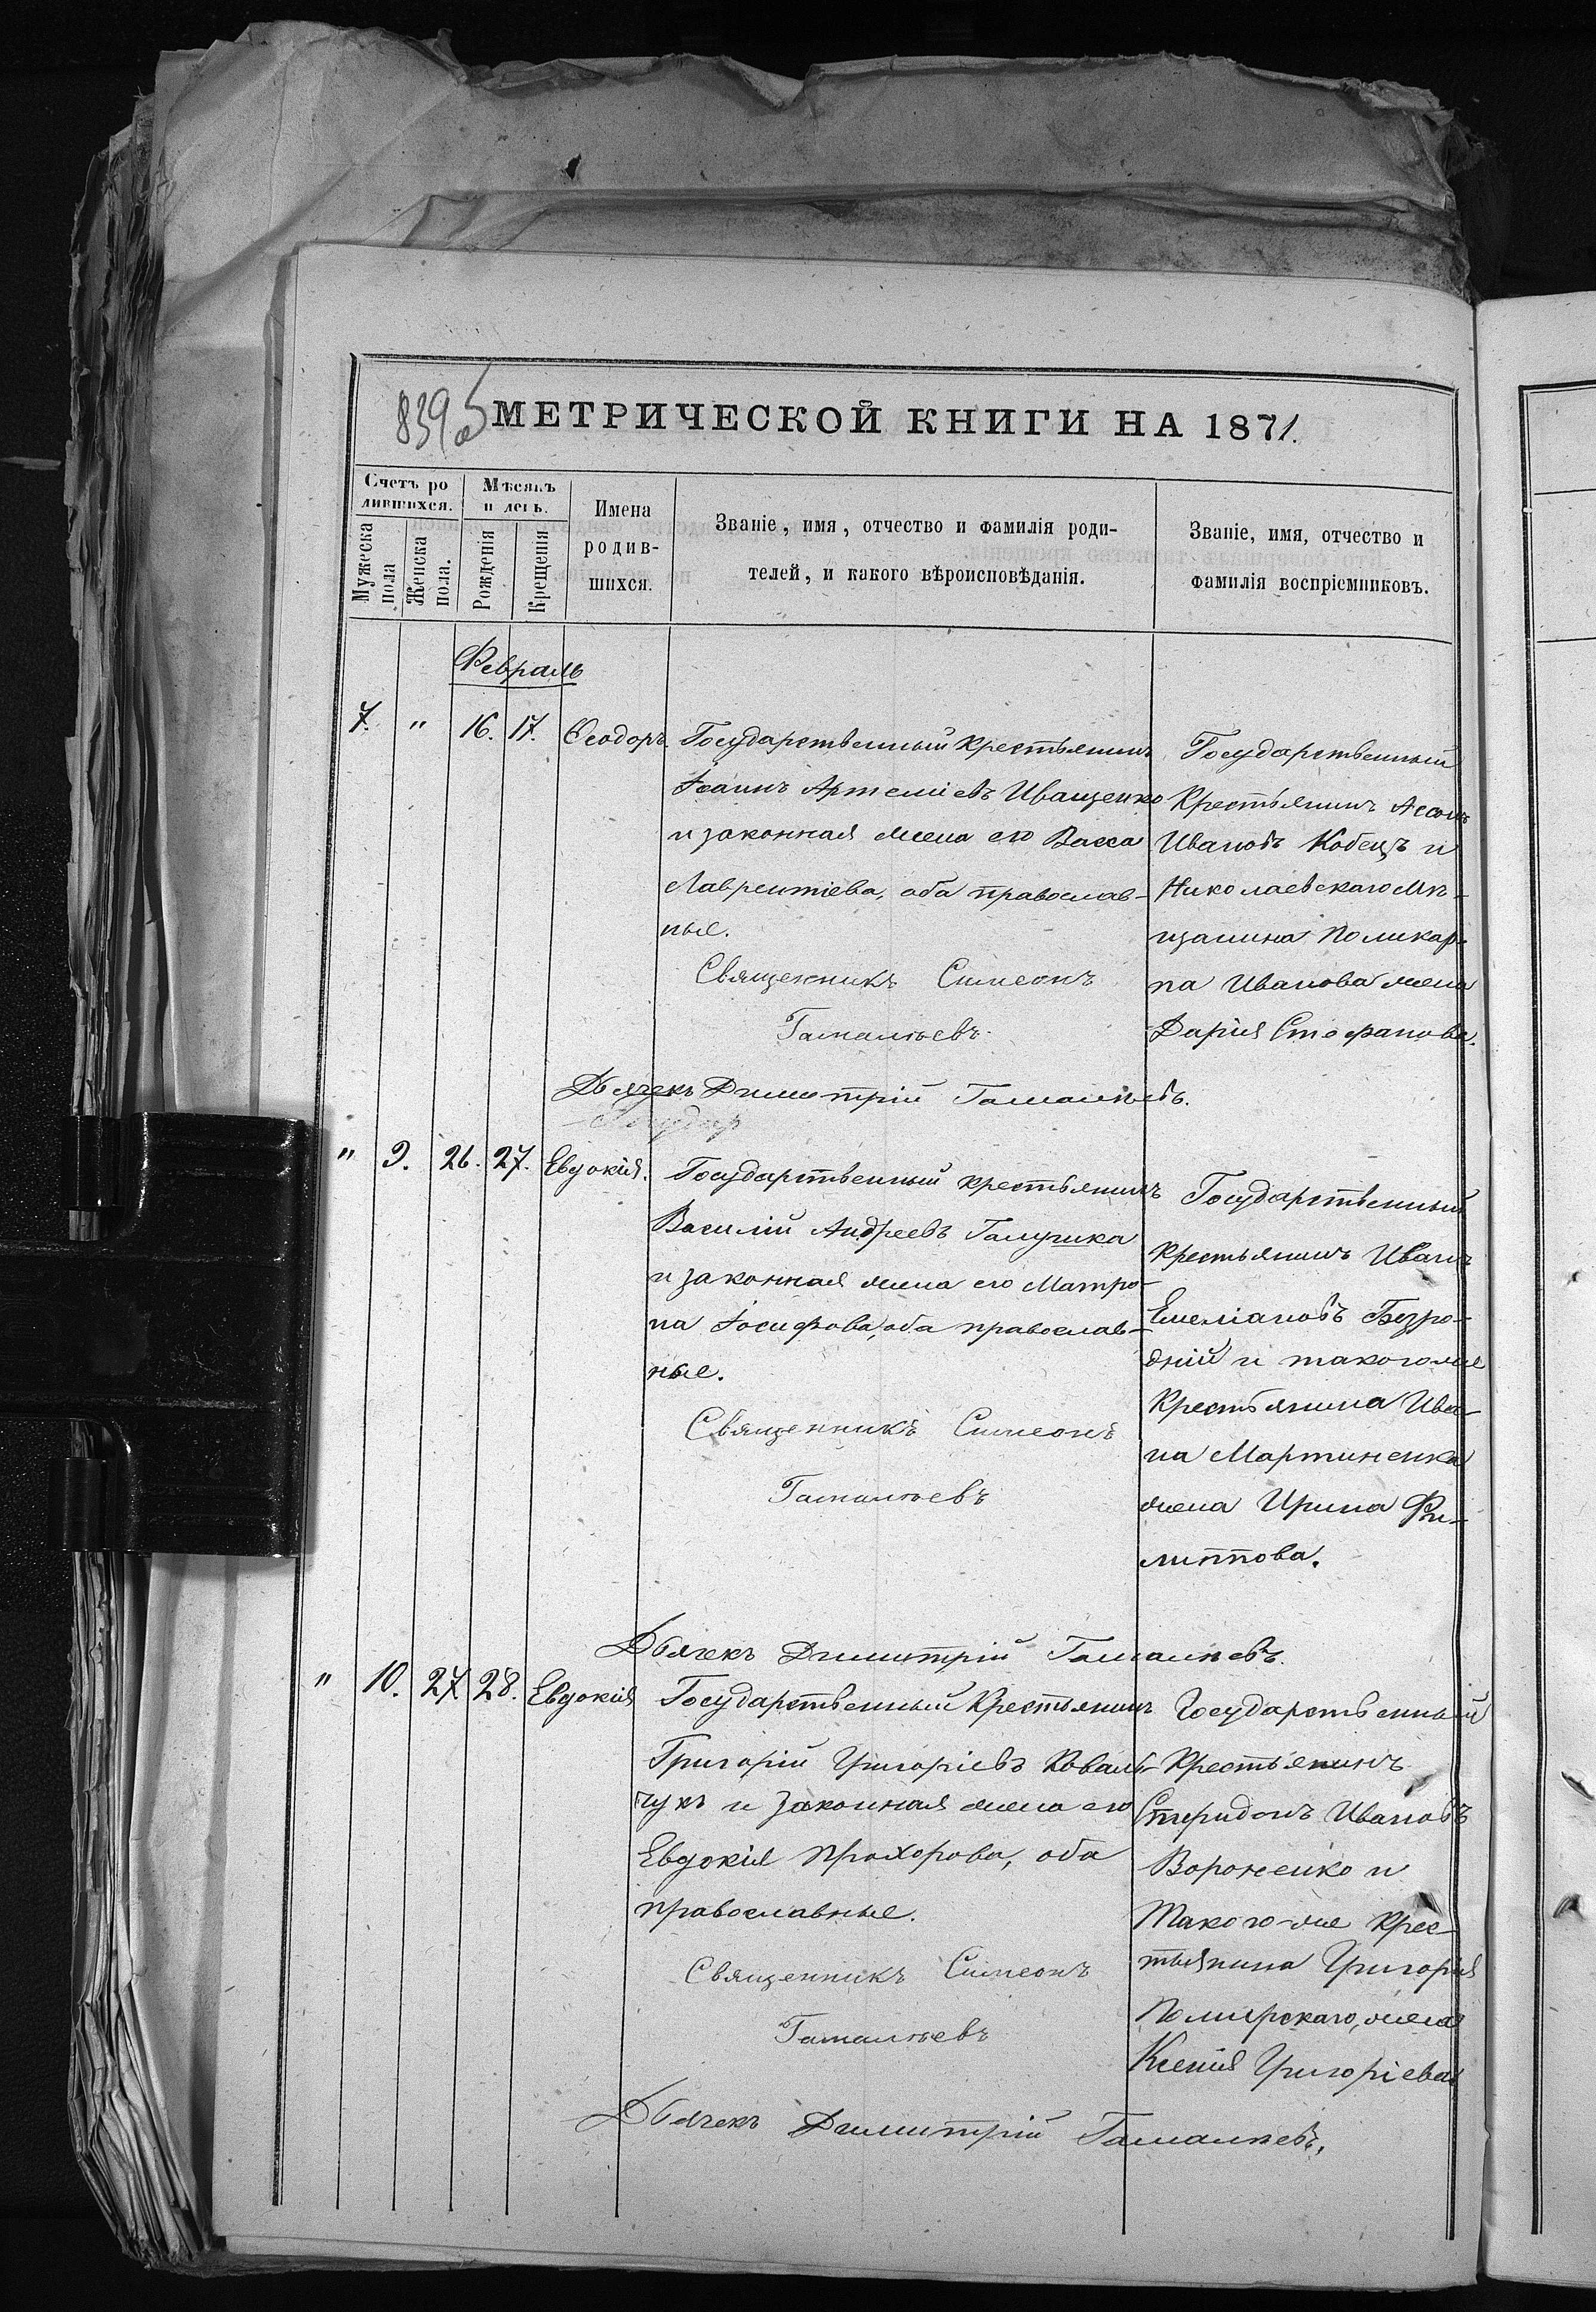 839 об
МЕТРИЧЕСКОЙ КНИГИ НА 1871.
Счетъ ро
дившихся.
Мужеска пола
Женска пола.
Мѣсяцъ
и день.
Рожденія
Крещенія
Имена
родив-
шихся.
Званіе, имя, отчество и фамилія роди-
телей, и какого вѣроисповѣданія.
Званіе, имя, отчество и
фамилія воспріемниковъ.
Февраль
7. " 16. 17. Ѳеодоръ.
Государственный крестьянинъ
Іоаннъ Артеміевъ Иващенко
и законная жена его Васса
Лаврентіева, оба православ-
ные.
Священникъ Симеонъ
Гамалѣевъ
Государственный
Крестьянинъ
Ивановъ Кобецъ и
Николаевскаго Мѣ-
щанина Поликар-
па Иванова жена
Дарія Стефанова.
Дьячекъ Димитрій Гамалѣевъ.
" 9. 26. 27. Евдокія.
Государственный крестьянинъ
Василій Андреевъ Галушка
и законная жена его Матро-
на Іосифова, оба православ-
ные.
Священникъ Симеонъ
Гамалѣевъ
Государственный
крестьянинъ Иванъ
Емеліановъ Безро-
дній и такого же
Крестьянина Ива-
на Мартиненка
жена Ирина Фи-
липпова.
Дьячекъ Димитрій Гамалѣевъ.
" 10. 27. 28. Евдокія
Государственный Крестьянинъ
Григорій Григоріевъ Коваль-
чукъ и законная жена его
Евдокія Прохорова, оба
православные.
Священникъ Симеонъ
Гамалѣевъ
Государственный
Крестьянинъ
Спиридонъ Ивановъ
Вороненко и
Такого-же Крес-
тьянина Григорія
жена
Ксенія Григоріева
Дьячекъ Димитрій Гамалѣевъ.